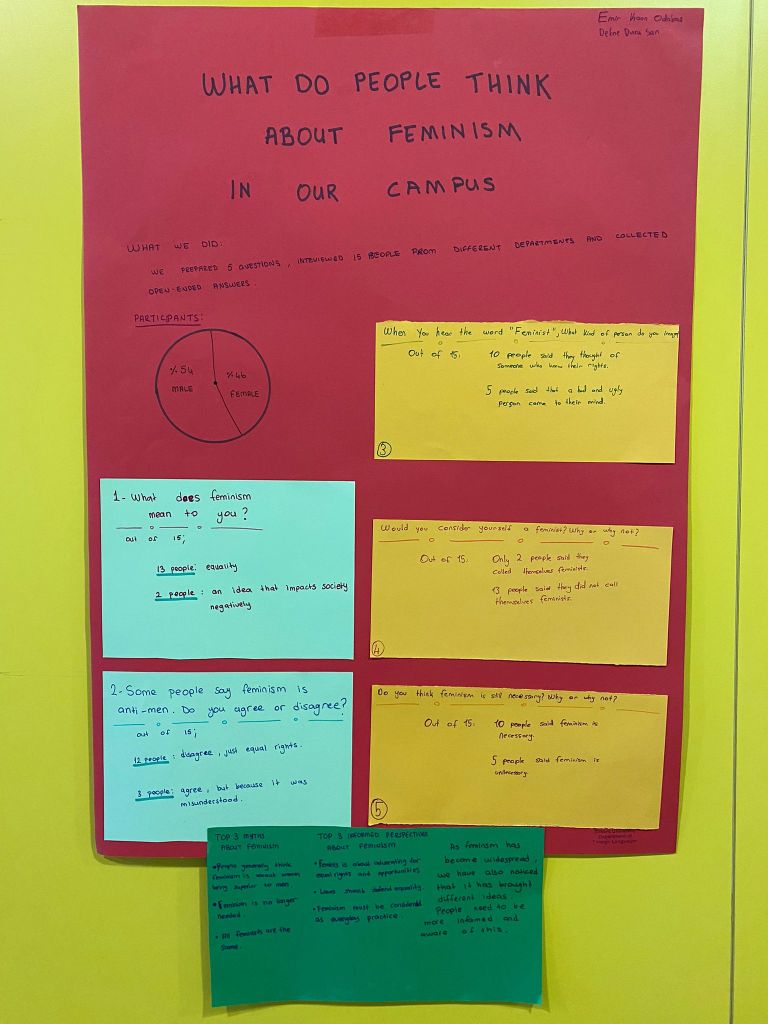 Emir Kaan Odabaş
Defne Duru San
WHAT DO PEOPLE THINK
ABOUT FEMINISM
IN OUR CAMPUS
WHAT WE DID:
WE PREPARED 5 QUESTIONS, INTEVIEWED 15 PEOPLE FROM DIFFERENT DEPARTMENTS AND COLLECTED
OPEN-ENDED ANSWERS.
PARTICIPANTS:
%54
MALE
%46
FEMALE
1- What does feminism
mean to you?
out of 15;
13 people: equality
2 people: an idea that impacts society
negatively
2- Some people say feminism is
anti-men. Do you agree or disagree?
out of 15;
12 people: disagree, just equal rights.
3 people: agree, but because it was
misunderstood.
When You hear the word "Feminist", What kind of person do you
Out of 15: 10 people said they thought of
someone who knew their rights.
5 people said that a bad and ugly
person came to their mind.
3
Would you consider yourself a feminist? Why or why not?
Out of 15: Only 2 people said they
called themselves feminists.
13 people said they did not call
themselves feminists.
4
Do you think feminism is still necessary? Why or why not?
Out of 15: 10 people said feminism is
necessary.
5 people said feminism is
unnecessary.
5
Department of
Foreign Languages
TOP 3 MYTHS
ABOUT FEMINISM
• People generally think
feminism is about women
being superior to men
• Feminism is no longer
needed
• All feminists are the
same.
TOP 3 INFORMED PERSPECTIVES
ABOUT FEMINISM
• is about advocating for
equal rights and opportunities
• Laws should defend equality.
• Feminism must be considered
as everyday practice.
As feminism has
become widespread,
we have also noticed
that it has brought
different ideas.
People need to be
more informed and
aware of this.